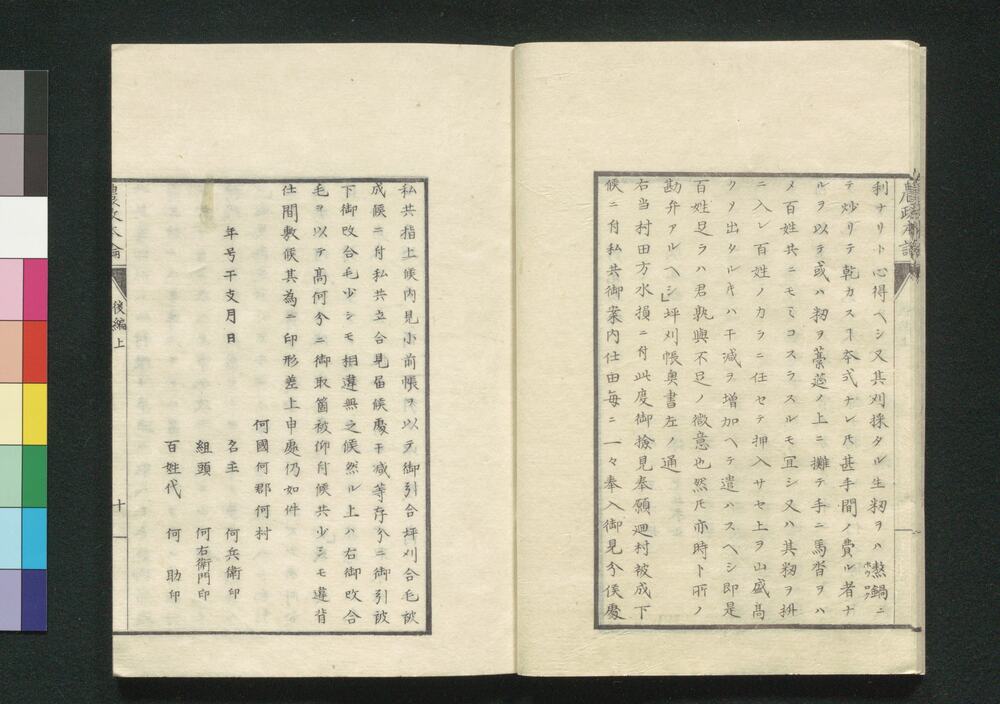 農政本論
利ナリト心得ヘシ又其刈採タル生籾ヲハ熬鍋ニ
テ炒リテ乾カスヿ本式ナレ𪜈甚手間ノ費ル者ナ
ルヲ以テ或ハ籾ヲ藁莚ノ上ニ攤テ手ニ馬沓ヲハ
メ百姓共ニモミコスラスルモ冝シ又ハ其籾ヲ升
ニ入レ百姓ノカラニ任セテ押入サセ上ヲ山盛高
クソ出タル𪜈ハ干減ヲ増加ヘテ遣ハスヘシ即是
百姓足ラハ君孰與不足ノ微意也然𪜈亦時ト所ノ
勘弁アルヘシ」坪刈帳奥書左ノ通
右当村田方水損ニ付此度御撿見奉願廻村被成下
候ニ付私共御案内仕田毎ニ一々奉入御見分候處
私共指上候内見小前帳ヲ以テ御引合坪刈合毛被
成候ニ付私共立合見届候處干減等存分ニ御引被
下御改合毛少シモ相違無之候然ル上ハ右御改合
毛ヲ以テ高何分ニ御取箇被仰付候共少シモ違背
仕間敷候其為ニ印形差上申處仍如件
年号干支月日
何國何郡何村
名主 何兵衛印
組頭 何右衛門印
百姓代 何助印
農政本論
後編上
十一